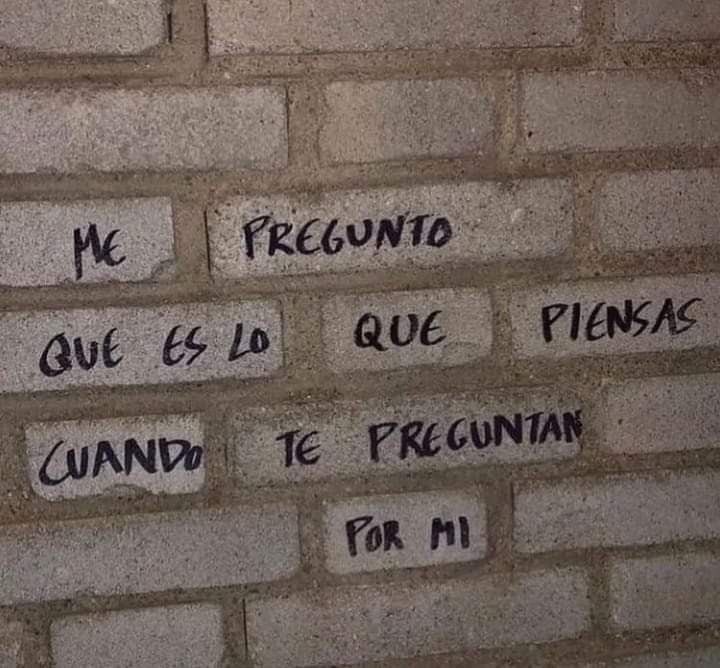 ME PREGUNTO
QUE ES LO QUE PIENSAS
CUANDO TE PREGUNTAN
POR MI